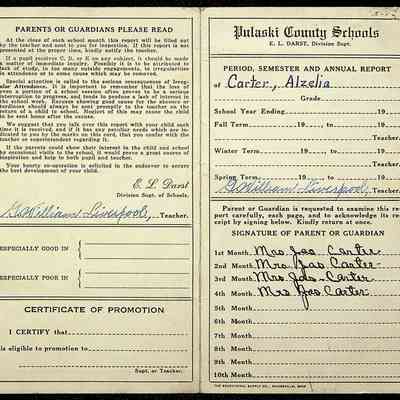 PARENTS OR GUARDIANS PLEASE READ
At the close of each school month this report will be filled out
by the teacher and sent to you for inspection. If this report is not
sent at the proper time, kindly notify the teacher.
If a pupil receives C, D, or E on any subject, it should be made
a matter of immediate inquiry. Possibly it is to be attributed to
lack of study, to too many outside engagements, to irregularities
in attendance or to some cause which may be removed.
Special attention is called to the serious consequences of Irregular
Attendance. It is important to remember that the loss of
a portion of a school session often proves to be a serious
interruption in progress, and tends to produce a lack of interest in
the school work. Excuses showing good cause for the absence or
tardiness should always be sent promptly to the teacher on the
return of a child to school. Teachers of this may cause the child
to be sent home after the excuse.
We suggest that you talk over this report with your child each
time it is received, and if it has any peculiar needs which are indicated
to you by the marks on this card, that you confer with the
teacher or superintendent and co-operate in remedying.
If the parents could show their interest in the child and school
by occasional visits to the school, it would prove a great source of
inspiration and help to both pupil and teacher.
Your hearty co-operation is solicited in the endeavor to secure
the best development of your child.
E. L. Darst
Division Supt. of Schools.
G. William Liverpool, Teacher.
ESPECIALLY GOOD IN
ESPECIALLY POOR IN
CERTIFICATE OF PROMOTION
I CERTIFY that
is eligible to promotion to
Supt. or Teacher.
Pulaski County Schools
E. L. DARST, Division Supt.
PERIOD, SEMESTER AND ANNUAL REPORT
of Carter, Alzelia
Grade
School Year Ending 19
Fall Term 19 , to 19
Teacher.
Winter Term 19 , to 19
Teacher.
Spring Term 19 , to 19
G. William Liverpool, Teacher.
Parent or Guardian is requested to examine this report
carefully, each page, and to acknowledge its receipt
by signing below. Kindly return at once.
SIGNATURE OF PARENT OR GUARDIAN
1st Month Mrs Jas Carter
2nd Month Mrs Jas Carter
3rd Month Mrs Jas Carter
4th Month Mrs Jas Carter
5th Month
6th Month
7th Month
8th Month
9th Month
10th Month